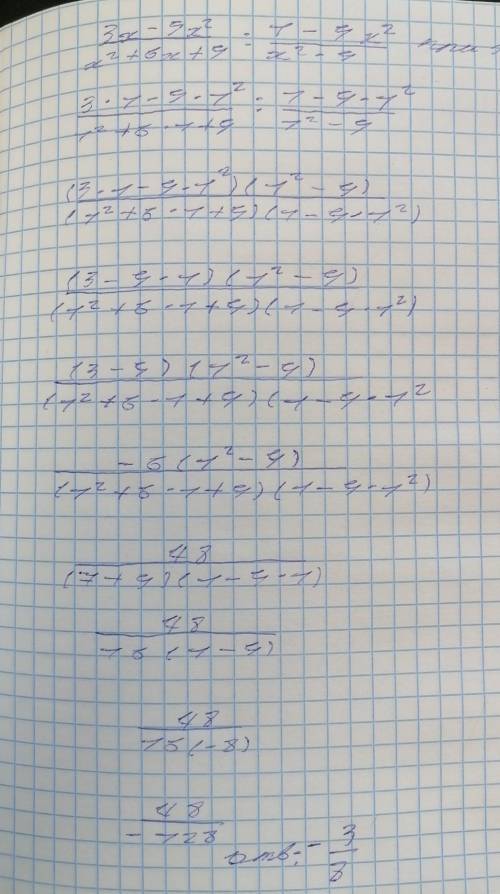 (3x - 9x²)/(x² + 6x + 9) : (1 - 9x²)/(x² - 9) при
(3·1 - 9·1²)/(1² + 6·1 + 9) : (1 - 9·1²)/(1² - 9)
((3·1 - 9·1²)(1² - 9))/((1² + 6·1 + 9)(1 - 9·1²))
((3 - 9·1)(1² - 9))/((1² + 6·1 + 9)(1 - 9·1²))
((3 - 9)(1² - 9))/((1² + 6·1 + 9)(1 - 9·1²
(-6(1² - 9))/((1² + 6·1 + 9)(1 - 9·1²))
48/((7 + 9)(1 - 9·1))
48/(16(1 - 9))
48/(16(-8))
48/(-128) отв: -3/8